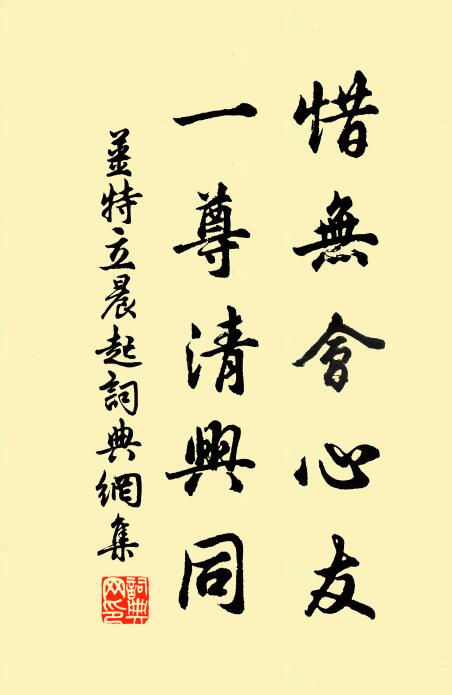 惜無會心友
一尊清興同
姜特立晨起詞典網集
詞典網印